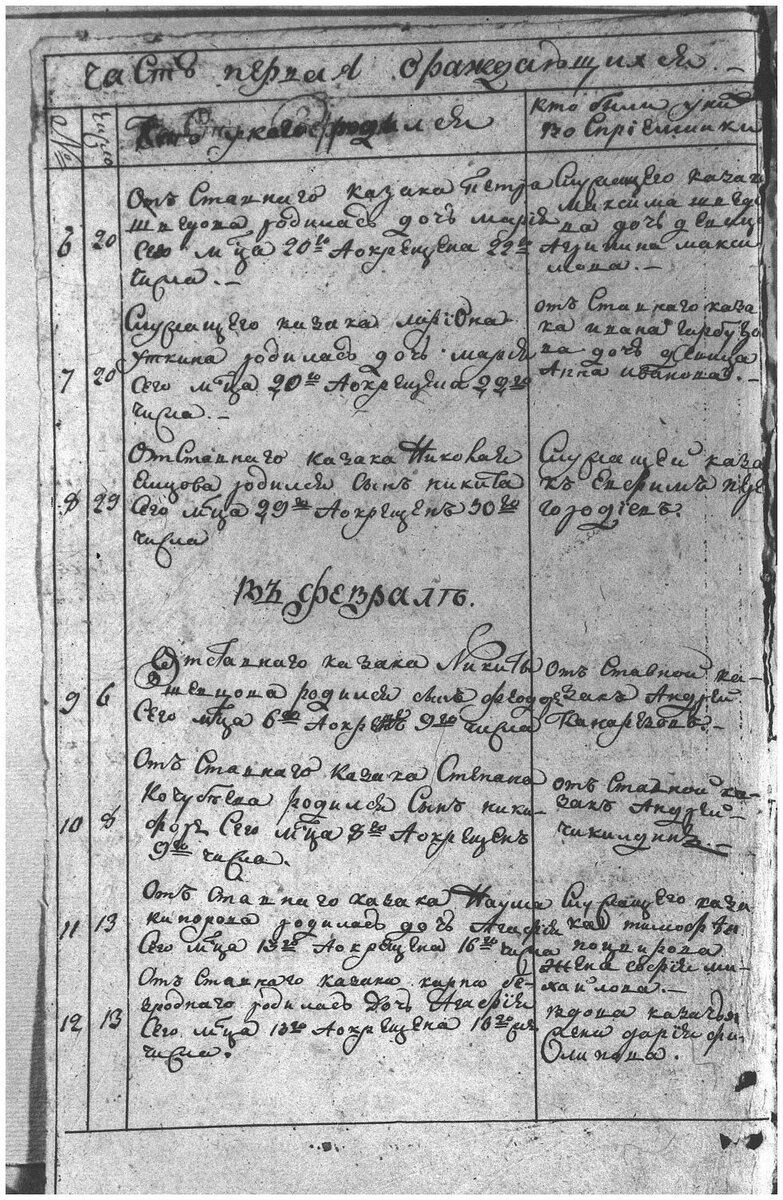 часть первая ораждающихся.
№
число
Кто у кого родился
кто были у них
восприемники
6
20
отъ Ставнаго казака Петра
швецова родилась дочь мария
сего мца 20го Аокрещена 22го
числа.
Служащего казака
максима
ва дочь девица
максимова.
7
20
Служащего казака лариона
уткина родилась дочь мария
сего мца 20го Аокрещена 22го
числа.
отъ Ставнаго казака
ивана гарбузова
дочь девица
Анна иванова.
8
29
отставнаго казака Николая
родился сынъ никита
сего мца 29го Аокрещенъ 30го
числа
Служащей казакъ
ефримъ
въ февралѣ.
9
6
Отставнаго казака Никиты
швецова родился сынъ феодоръ
сего мца 6го Аокрещенъ 9го числа
отъ Ставной казакъ
Андрей
10
8
отъ Ставнаго казака Степана
Кочубѣева родился сынъ никифоръ
сего мца 8го Аокрещенъ
9го числа.
отъ Ставной казакъ
Андрей
чикилдинъ.
11
13
отъ Ставнаго казака Наума
родилась дочь Агафия
сего мца 13го Аокрещена 16го числа
Служащего казака
тимофѣя
жена софия михаилова.
12
13
отъ Ставнаго казака карпа безроднаго
родилась дочь Агафия
сего мца 13го Аокрещена 16го
числа.
вдова казачья
дария филипова.